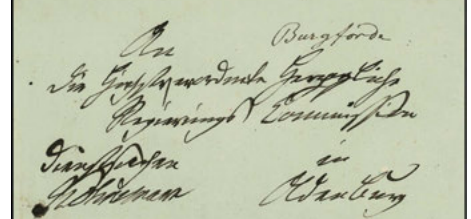 An Burgforde
die Höchstverordnete Herzogliche
Regierungs Commission
Dienstsachen in
Oldenburg